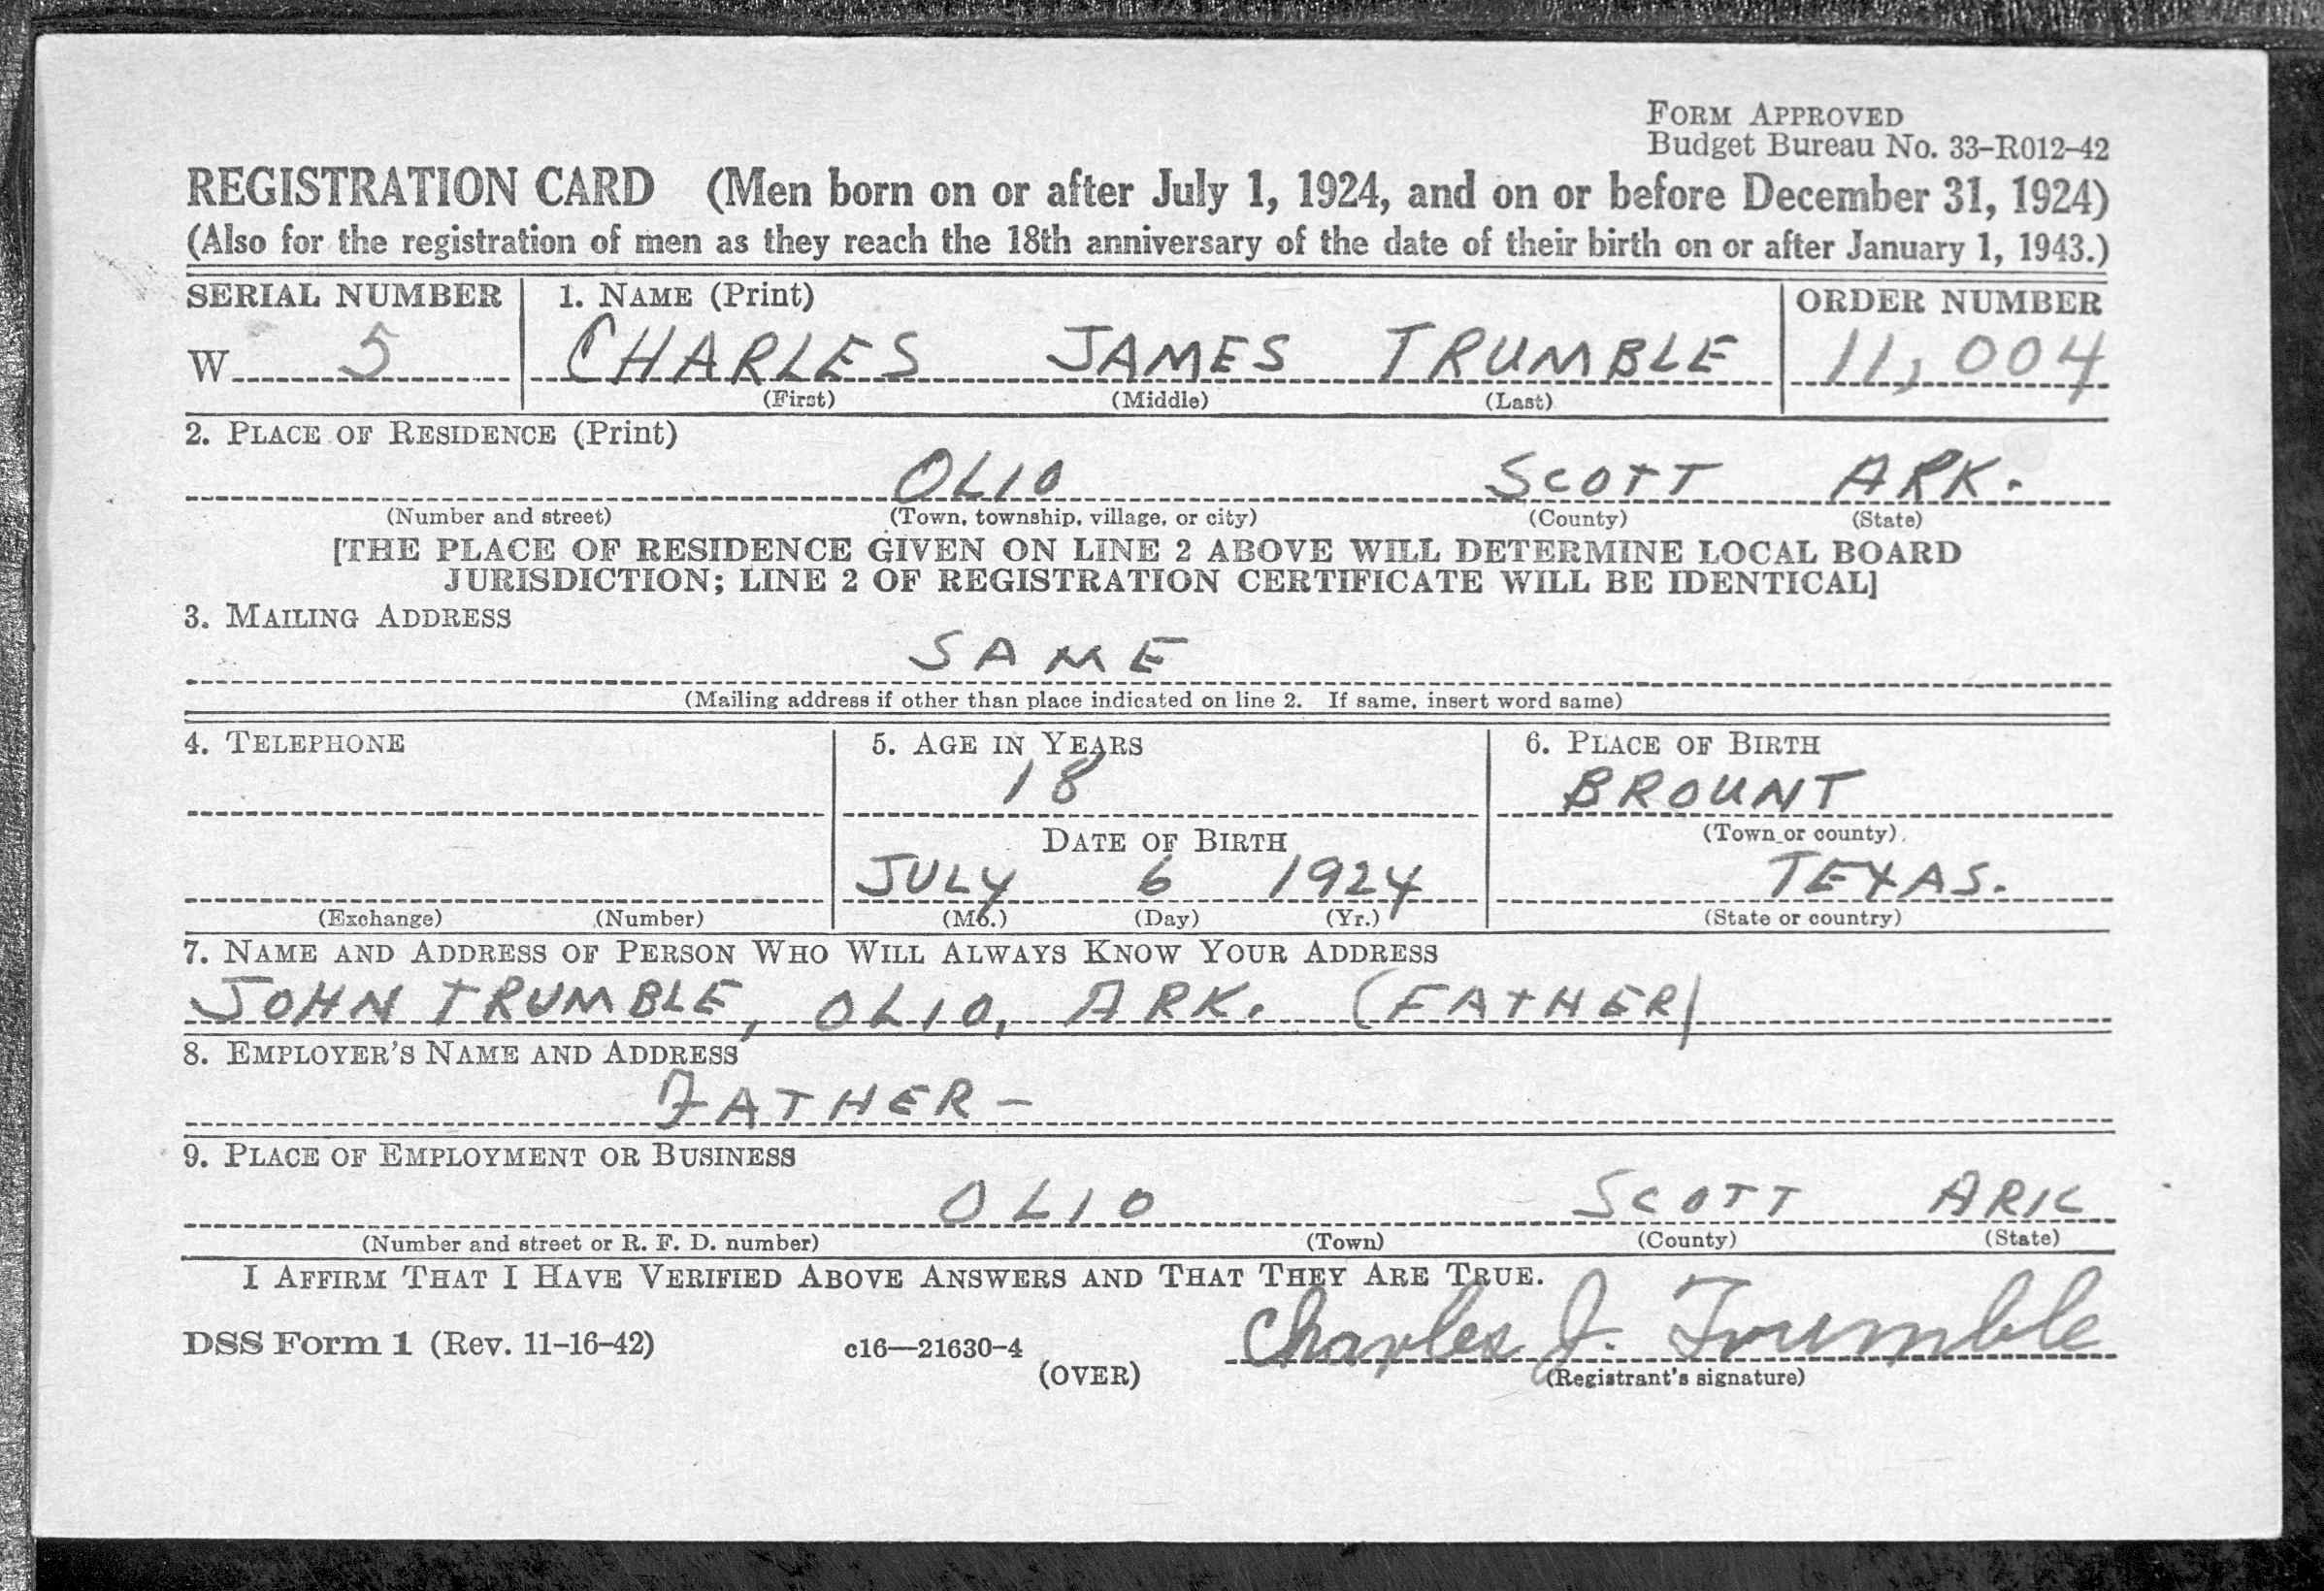 FORM APPROVED
Budget Bureau No. 33-R012-42
REGISTRATION CARD (Men born on or after July 1, 1924, and on or before December 31, 1924)
(Also for the registration of men as they reach the 18th anniversary of the date of their birth on or after January 1, 1943.)
SERIAL NUMBER 1. NAME (Print) ORDER NUMBER
W 5 CHARLES JAMES TRUMBLE 11,004
(First) (Middle) (Last)
2. PLACE OF RESIDENCE (Print)
OLIO SCOTT ARK.
(Number and street) (Town, township, village, or city) (County) (State)
[THE PLACE OF RESIDENCE GIVEN ON LINE 2 ABOVE WILL DETERMINE LOCAL BOARD
JURISDICTION; LINE 2 OF REGISTRATION CERTIFICATE WILL BE IDENTICAL]
3. MAILING ADDRESS
SAME
(Mailing address if other than place indicated on line 2. If same, insert word same)
4. TELEPHONE 5. AGE IN YEARS 6. PLACE OF BIRTH
18 BROUNT
DATE OF BIRTH (Town or county)
JULY 6 1924 TEXAS.
(Exchange) (Number) (Mo.) (Day) (Yr.) (State or country)
7. NAME AND ADDRESS OF PERSON WHO WILL ALWAYS KNOW YOUR ADDRESS
JOHN TRUMBLE, OLIO, ARK. (FATHER)
8. EMPLOYER'S NAME AND ADDRESS
FATHER-
9. PLACE OF EMPLOYMENT OR BUSINESS
OLIO SCOTT ARK
(Number and street or R. F. D. number) (Town) (County) (State)
I AFFIRM THAT I HAVE VERIFIED ABOVE ANSWERS AND THAT THEY ARE TRUE.
DSS Form 1 (Rev. 11-16-42) c16—21630-4 Charles J. Trumble
(OVER) (Registrant's signature)